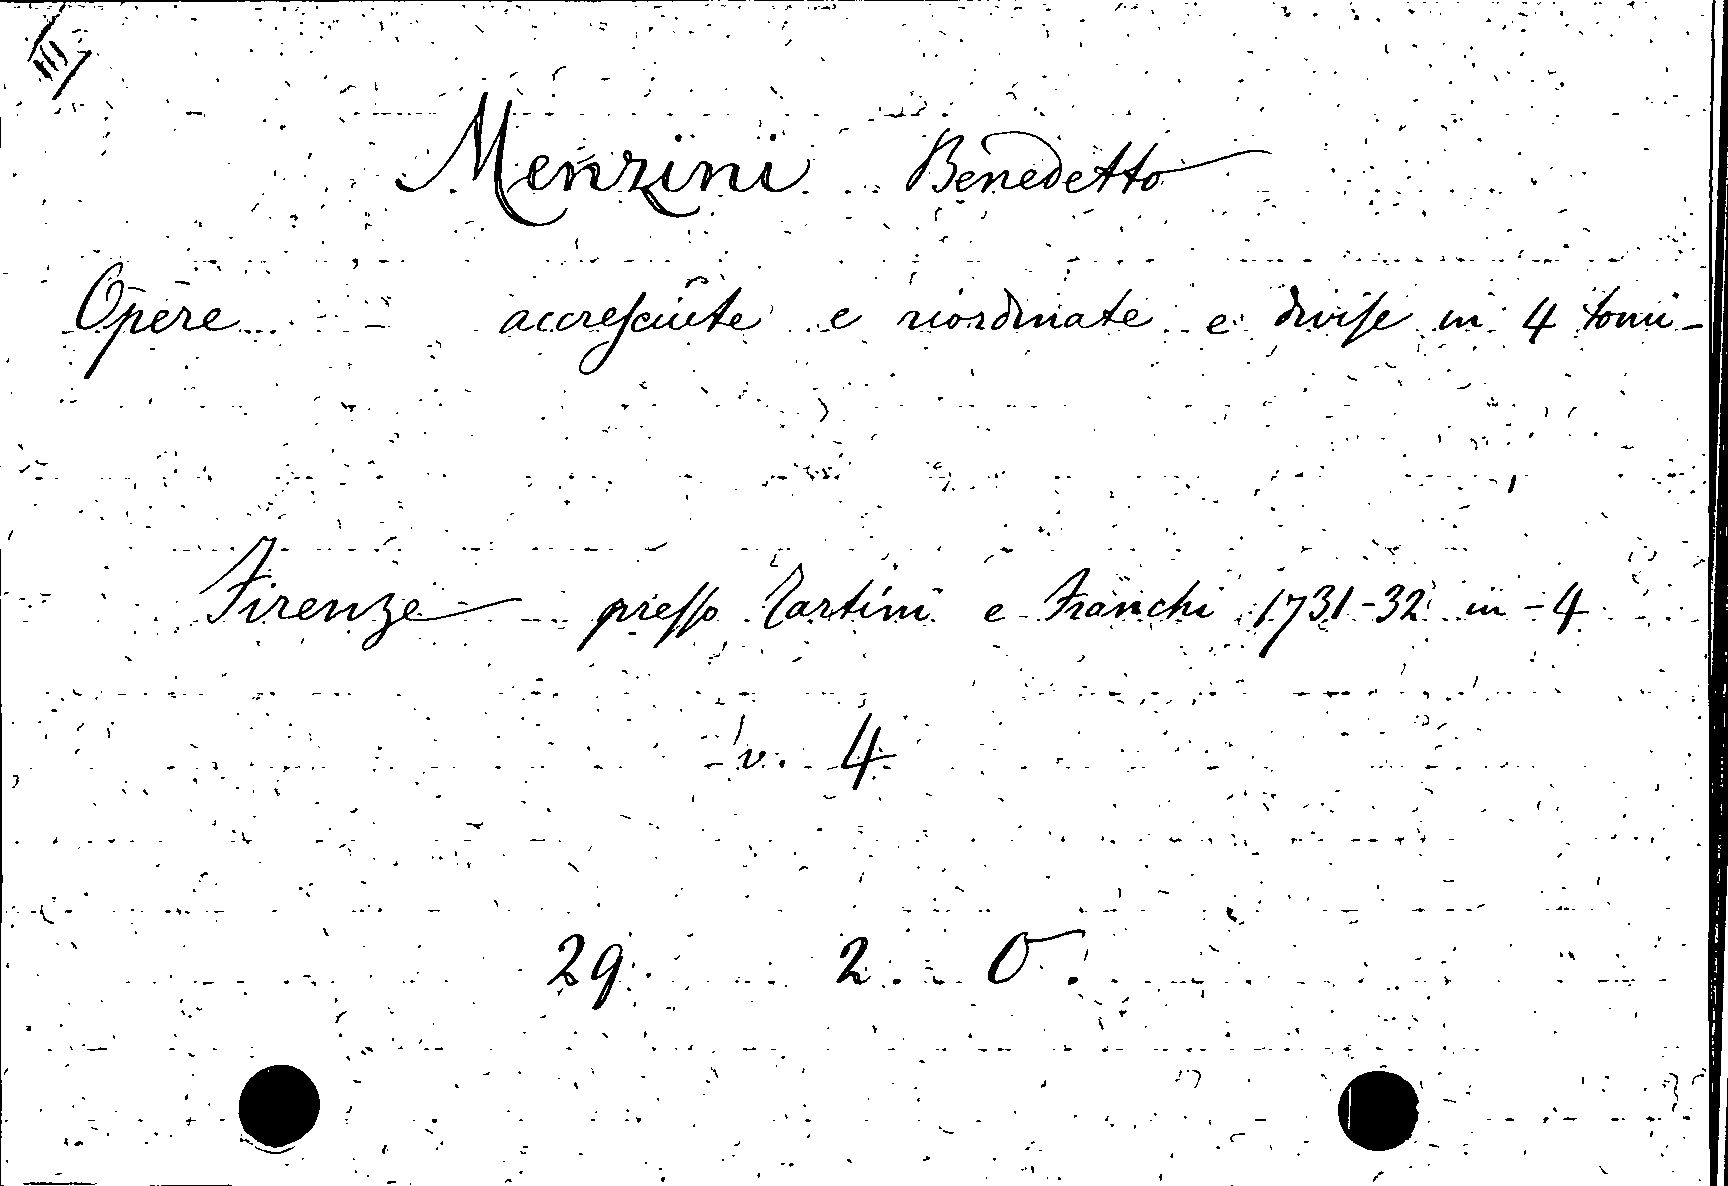 III
Menzini Benedetto
Opere - accresciute e riordinate e divise in 4 tomi -
Firenze presso Tartini e Franchi 1731-32 in-4
v. 4
29. 2. O.